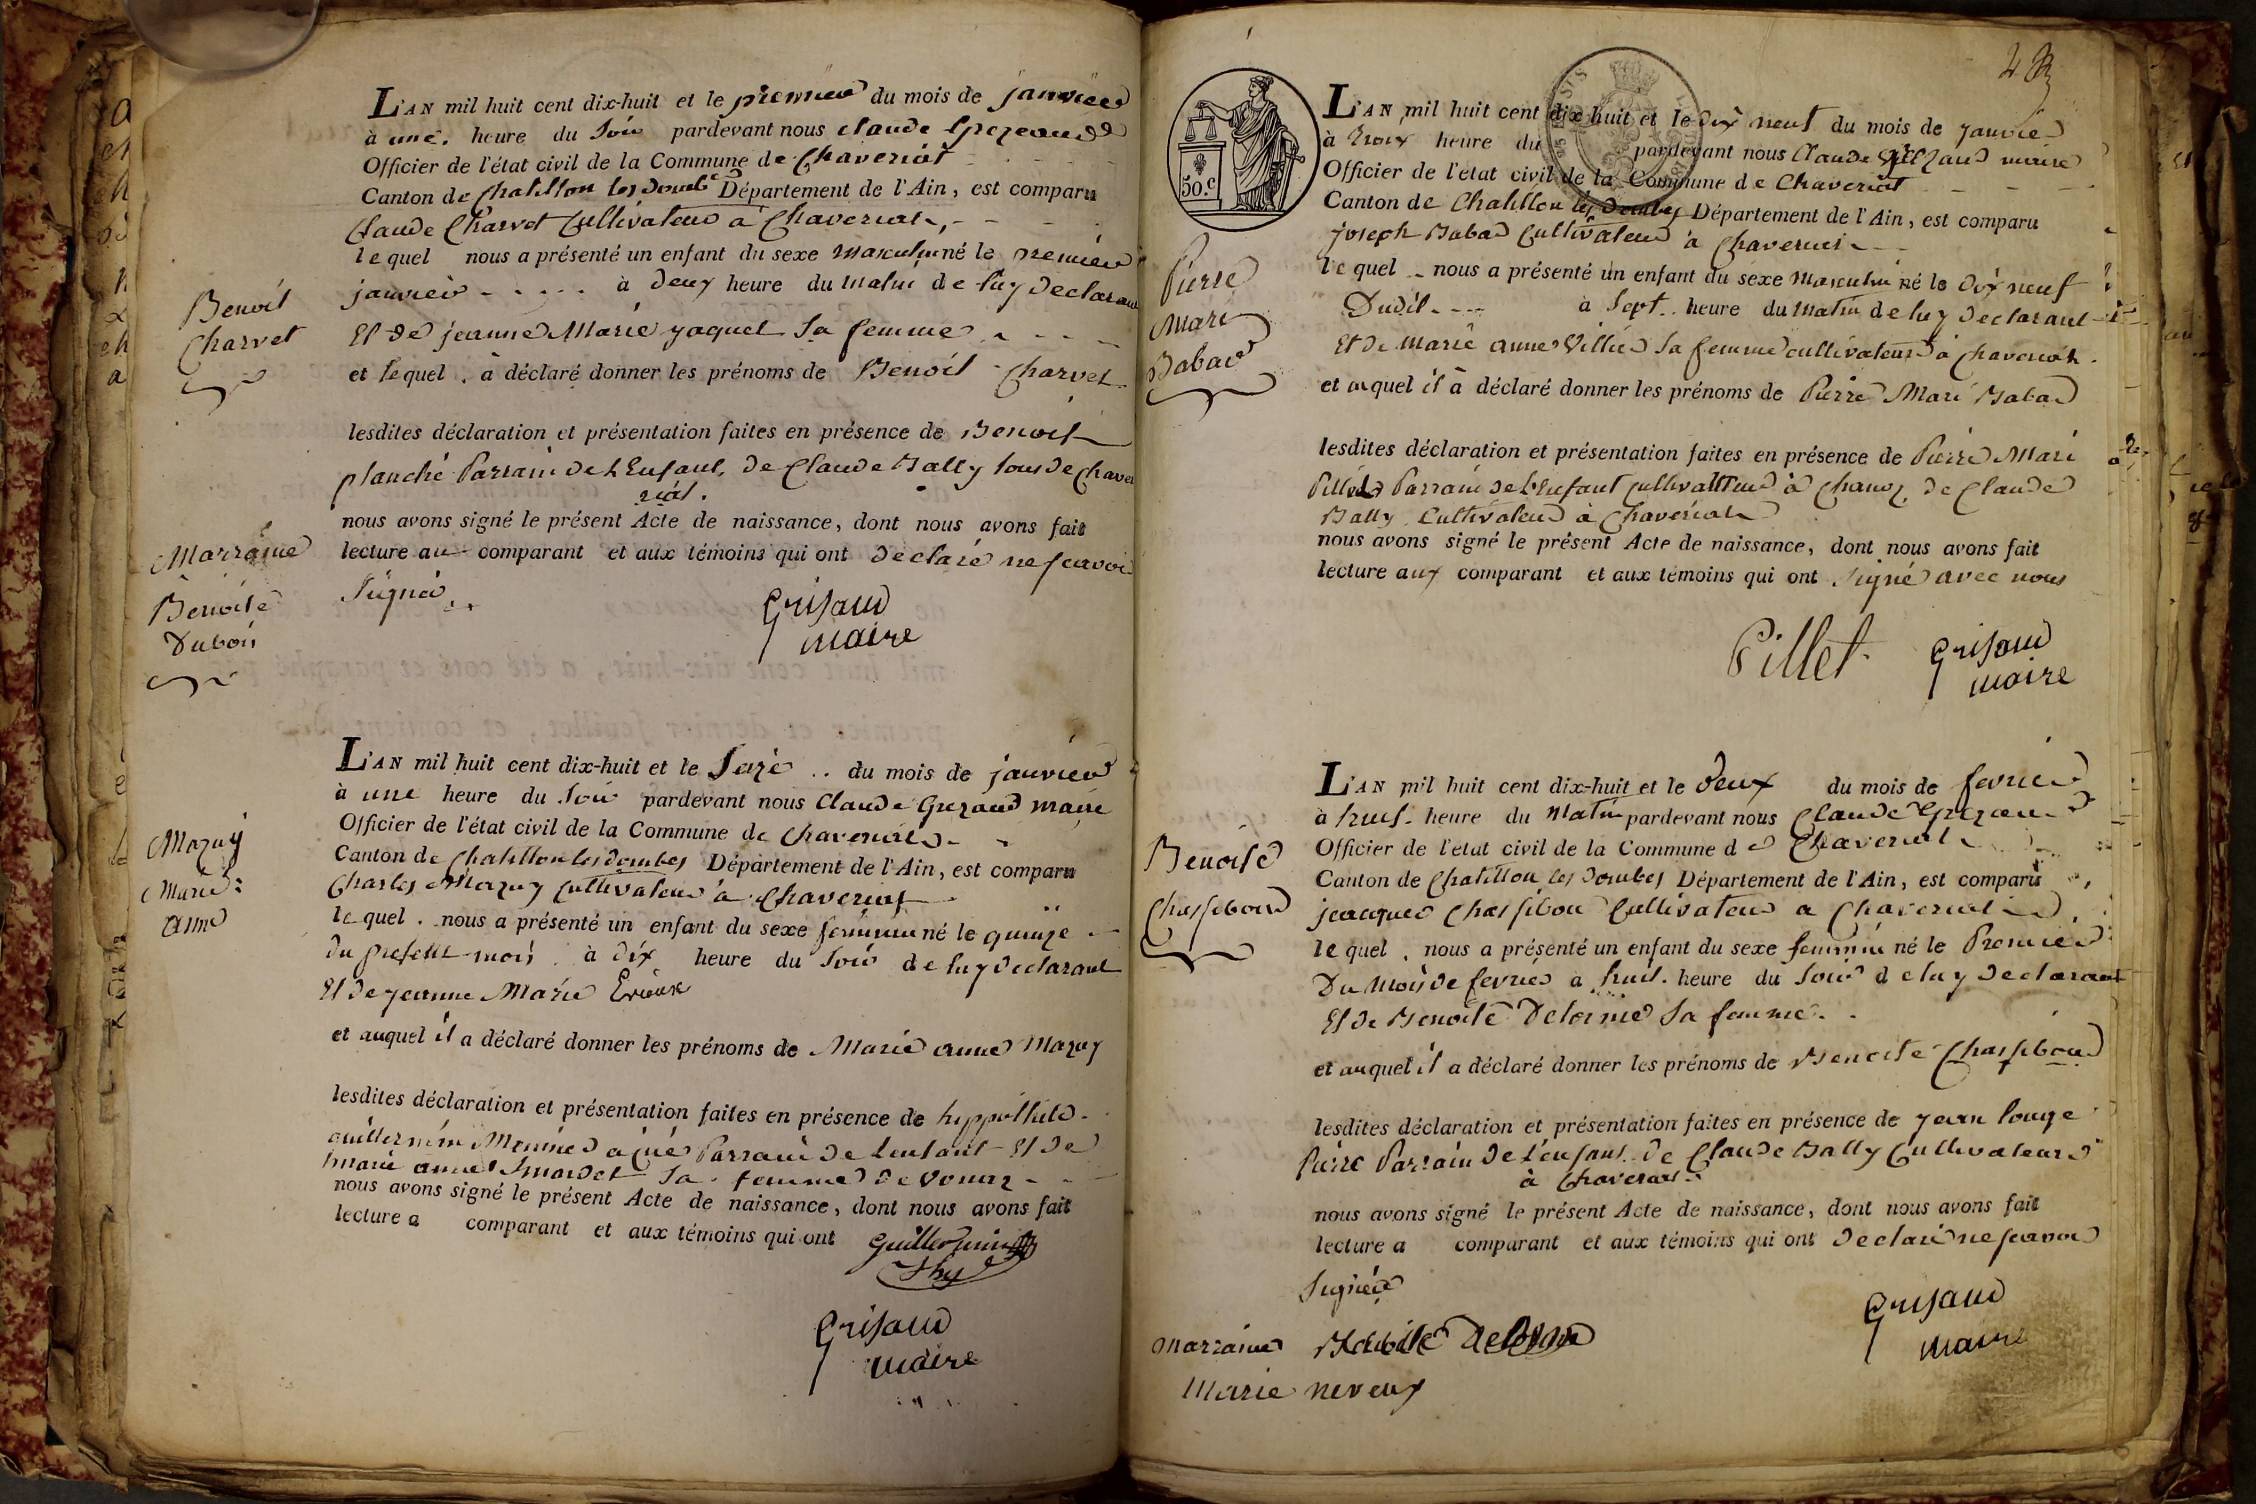 L'AN mil huit cent dix-huit et le premier du mois de janvier
à une heure du Soir pardevant nous claude
Officier de l'état civil de la Commune de Chaveriat
Canton de Chatillon les Dombe Département de l'Ain, est comparu
Claude Charvet Cultivateur à Chaveriat
lequel nous a présenté un enfant du sexe masculin né le premier
janvier à deux heure du matin de luy declarant
Et de jeanne Marie yaquet Sa femme
et lequel à déclaré donner les prénoms de Benoit Charvet
lesdites déclaration et présentation faites en présence de Benoit
planché Parrain de L'Enfant, de Claude Bally tous de Chave
riat.
nous avons signé le présent Acte de naissance, dont nous avons fait
lecture au comparant et aux témoins qui ont declaré ne scavoir
Signer
Grisaud
maire
Benoit
Charvet
Marraine
Benoite
Dubois
L'AN mil huit cent dix-huit et le Seize du mois de janvier
à une heure du Soir pardevant nous Claude Grezaud maire
Officier de l'état civil de la Commune de Chaveriat
Canton de Chatillon les dombes Département de l'Ain, est comparu
Charles Mazuy Cultivateur à Chaveriat
lequel nous a présenté un enfant du sexe feminin né le quinze
du present mois à dix heure du Soir de luy declarant
Et de jeanne Marie
et auquel il a déclaré donner les prénoms de Marie anne Mazuy
lesdites déclaration et présentation faites en présence de hyppolite
guillermin Parrain de Lenfant Et de
marie anne Sa femme de Vonnaz
nous avons signé le présent Acte de naissance, dont nous avons fait
lecture a comparant et aux témoins qui ont Guillermin
Grisaud
maire
Mazuy
Marie
anne
50.c
L'AN mil huit cent dix-huit et le dix neuf du mois de janvier
à trois heure du pardevant nous Claude maire
Officier de l'état civil de la Commune de Chaveriat
Canton de Chatillon les Dombes Département de l'Ain, est comparu
joseph Babad Cultivateur à Chaveriat
lequel nous a présenté un enfant du sexe Masculin né le dix neuf
Dudit à Sept heure du matin de luy declarant
Et de marie anne Sa femme cultivateurs à Chaveriat
et auquel il à déclaré donner les prénoms de Pierre Marie Babad
lesdites déclaration et présentation faites en présence de Pierre Marie
Pillet Parrain de L'Enfant Cultivatteur à Chanoz, de Claude
Bally Cultivateur à Chaveriat
nous avons signé le présent Acte de naissance, dont nous avons fait
lecture aux comparant et aux témoins qui ont Signé avec nous
Pillet
Grisaud
maire
Pierre
Mari
Babad
L'AN mil huit cent dix-huit et le deux du mois de fevrier
à huit heure du Matin pardevant nous Claude
Officier de l'état civil de la Commune de Chaveriat
Canton de Chatillon les Dombes Département de l'Ain, est comparu
jeacques Chassibou Cultivateur a Chaveriat
lequel nous a présenté un enfant du sexe feminin né le Premier
Du Mois de fevrier a huit heure du Soir de luy declarant
Et de Benoite Delorme Sa femme
et auquel il a déclaré donner les prénoms de Benoite Chassiboud
lesdites déclaration et présentation faites en présence de jean louye
Pierre Parrain de L'enfant de Claude Bally Cultivateurs
à Chaveriat
nous avons signé le présent Acte de naissance, dont nous avons fait
lecture a comparant et aux témoins qui ont declaré ne scavoir
Signer
Grisaud
maire
Benoite
Chassiboud
Marraine
Marie neveux